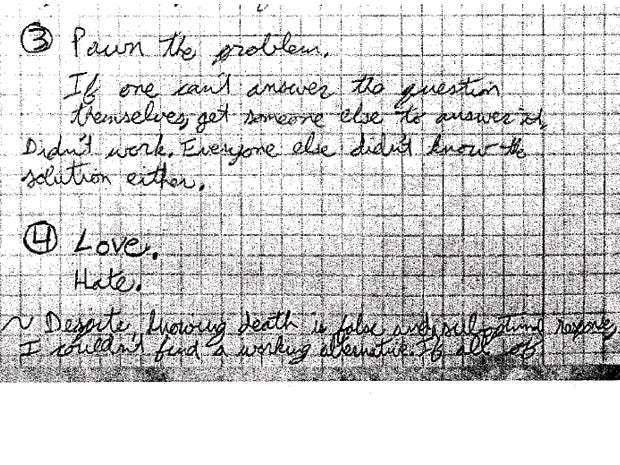 ③ Pawn the problem.
If one can't answer the question
themselves, get someone else to answer it.
Didn't work. Everyone else didn't know the
solution either.
④ Love.
Hate.
~ Despite knowing death is false and response,
I couldn't find a working alternative. If all of